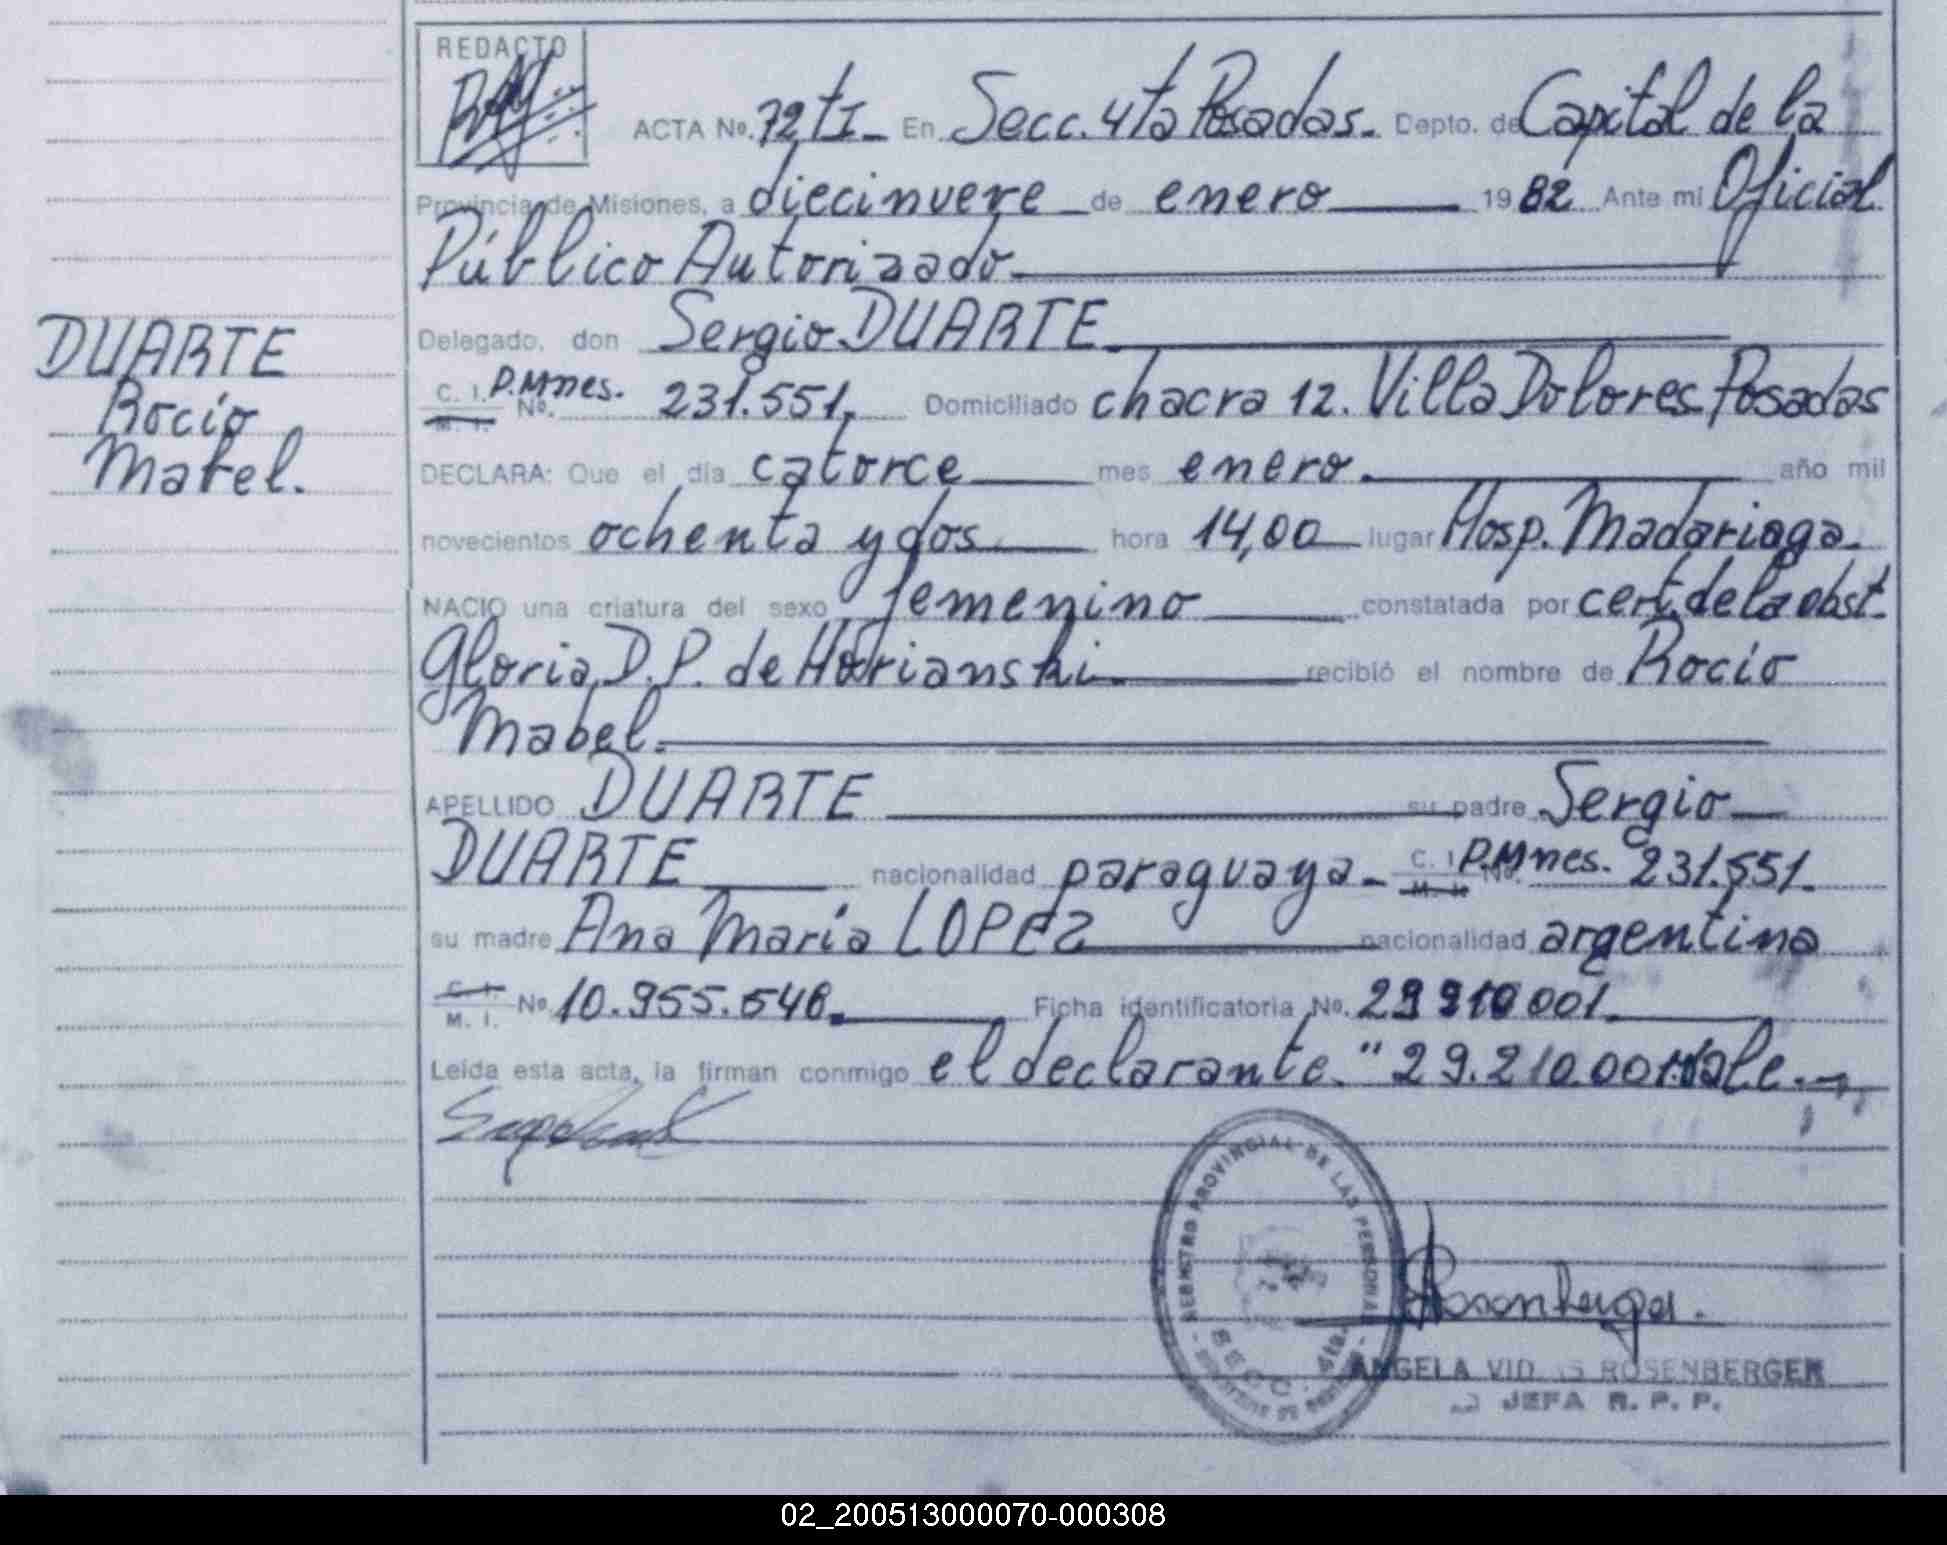 REDACTO
ACTA No. 72 tI_ En Secc. 4ta Posadas. Depto. de Capital de la
Provincia de Misiones, a diecinueve de enero 1982 Ante mi Oficial
Público Autorizado.
Delegado, don Sergio DUARTE
DUARTE
Rocío
Mabel.
C. I. P.Mnes. No. 231.551, Domiciliado chacra 12. Villa Dolores Posadas
M. I.
DECLARA: Que el día catorce mes enero. año mil
novecientos ochenta y dos hora 14,00 lugar Hosp. Madariaga.
NACIO una criatura del sexo femenino constatada por cert. de la obst.
Gloria D. P. de Horianski recibió el nombre de Rocío
Mabel.
APELLIDO DUARTE su padre Sergio
DUARTE nacionalidad paraguaya C. I. P.Mnes. No. 231.551.
M. I.
su madre Ana María LOPEZ nacionalidad argentina
C. I. No. 10.955.546. Ficha identificatoria No. 29 910 001.
M. I.
Leída esta acta, la firman conmigo el declarante. "29.210.001. Vale.
REGISTRO PROVINCIAL DE LAS PERSONAS
SECC. 4ta.
Rosenberger.
ANGELA VID S ROSENBERGER
JEFA R. P. P.
02_200513000070-000308